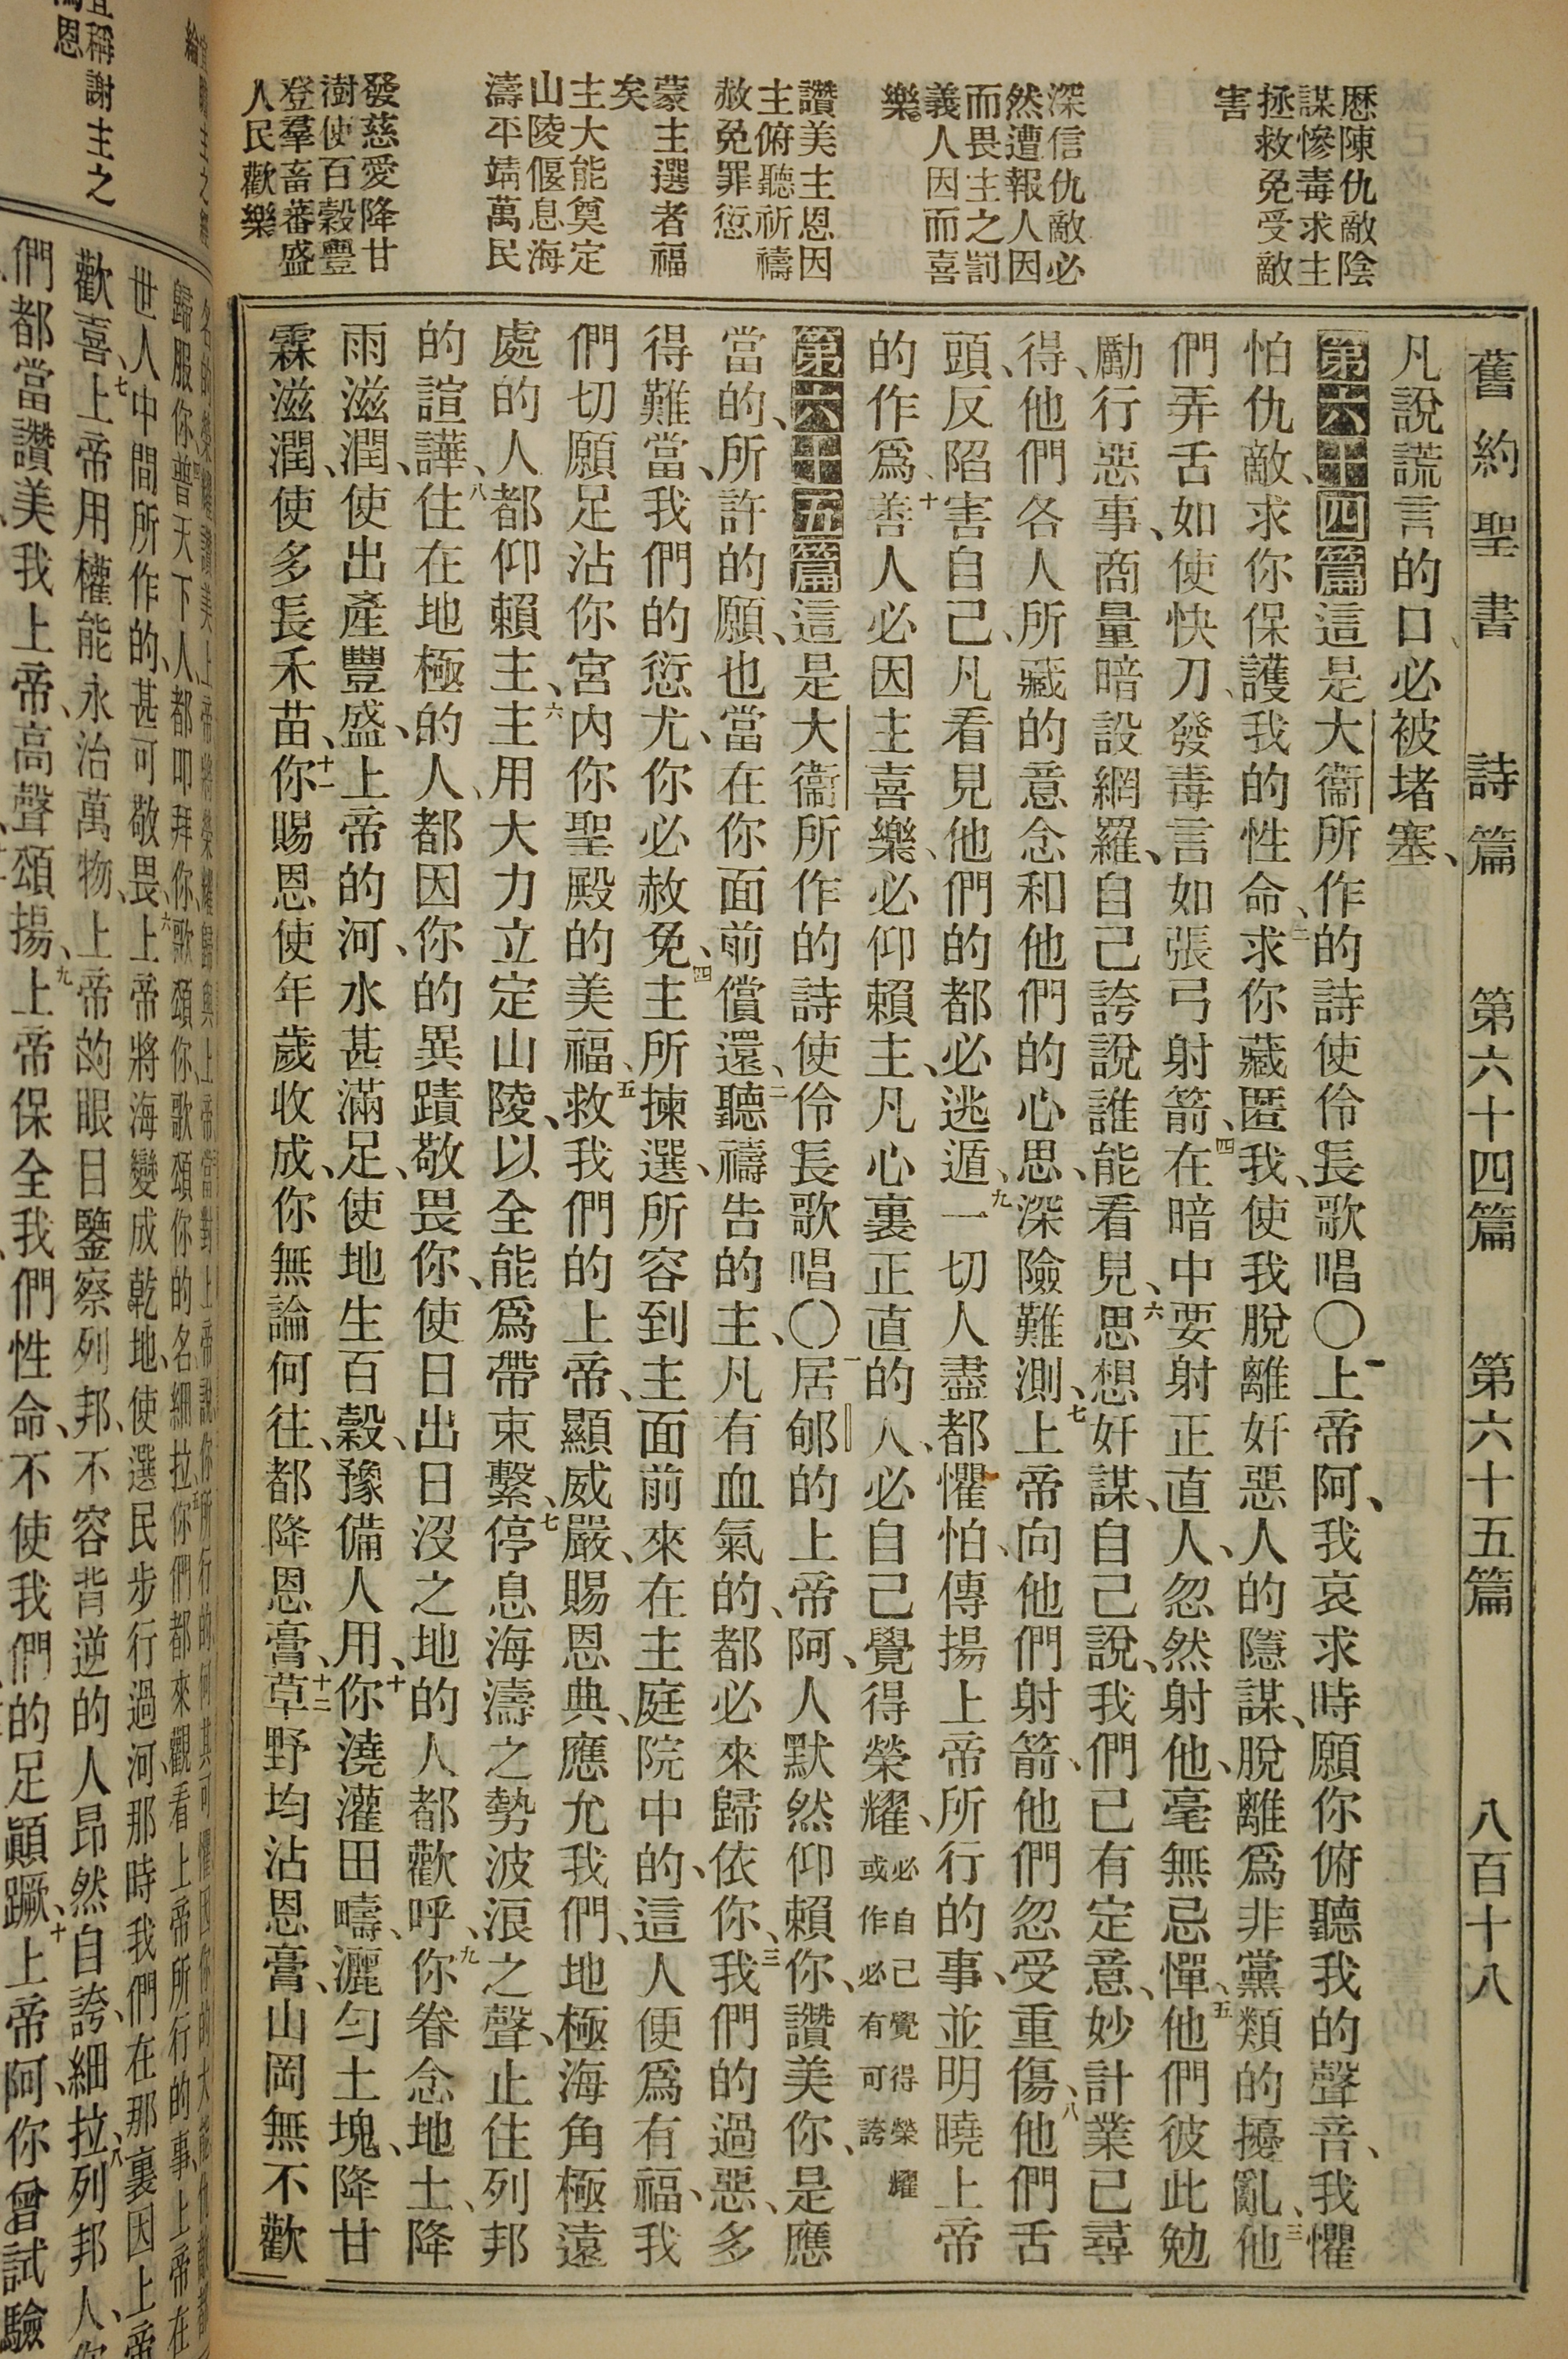 舊約聖書 詩篇 第六十四篇 第六十五篇 八百十八
歷陳仇敵陰
謀慘毒求主
拯救免受敵
害
深信仇敵必
然遭報人因
而畏主之罰
義人因而喜
樂
讚美主恩因
主俯聽祈禱
赦免罪愆
蒙主選者福
矣
主大能奠定
山陵偃息海
濤平靖萬民
發慈愛降甘
澍使百穀豐
登羣畜蕃盛
人民歡樂
凡說謊言的口、必被堵塞、
第六十四篇這是大衞所作的詩使伶長歌唱〇一上帝阿、我哀求時願你俯聽我的聲音、我懼
怕仇敵、求你保護我的性命、二求你藏匿我、使我脫離奸惡人的隱謀、脫離爲非黨類的擾亂、三他
們弄舌如使快刀、發毒言如張弓射箭、四在暗中要射正直人、忽然射他、毫無忌憚、五他們彼此勉
勵行惡事、商量暗設網羅、自己誇說誰能看見、六思想奸謀、自己說、我們已有定意、妙計業已尋
得、他們各人所藏的意念和他們的心思、深險難測、七上帝向他們射箭、他們忽受重傷、八他們舌
頭、反陷害自己、凡看見他們的都必逃遁、九一切人盡都懼怕、傳揚上帝所行的事、並明曉上帝
的作爲、十善人必因主喜樂、必仰賴主、凡心裏正直的人、必自己覺得榮耀、必自己覺得榮耀或作必有可誇
第六十五篇這是大衞所作的詩使伶長歌唱〇一居郇的上帝阿、人默然仰賴你、讚美你、是應
當的、所許的願、也當在你面前償還、二聽禱告的主、凡有血氣的、都必來歸依你、三我們的過惡、多
得難當、我們的愆尤、你必赦免、四主所揀選、所容到主面前來在主庭院中的、這人便爲有福、我
們切願足沾你宮內你聖殿的美福、五救我們的上帝、顯威嚴、賜恩典、應允我們、地極海角極遠
處的人都仰賴主、六主用大力立定山陵、以全能爲帶束繫、七停息海濤之勢波浪之聲、止住列邦
的諠譁、八住在地極的人、都因你的異蹟敬畏你、使日出日沒之地的人都歡呼、九你眷念地土、降
雨滋潤、使出產豐盛、上帝的河、河水甚滿足、使地生百穀、豫備人用、十你澆灌田疇、灑勻土塊、降甘
霖滋潤、使多長禾苗、十一你賜恩使年歲收成、你無論何往、都降恩膏、十二草野均沾恩膏、山岡無不歡
宜稱謝主之
世人中間所作的、甚可敬畏、六上帝將海變成乾地、使選民步行過河、那時我們在那裏因上帝
歡喜、七上帝用權能永治萬物、上帝的眼目鑒察列邦、不容背逆的人昂然自誇、細拉、八列邦人、你
們都當讚美我上帝、高聲頌揚、九上帝保全我們性命、不使我們的足顚蹶、十上帝阿、你曾試驗